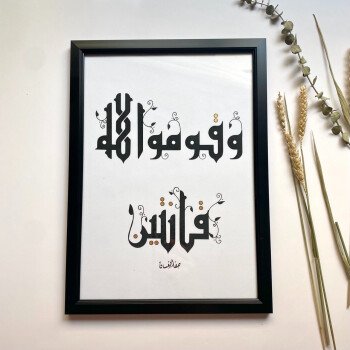 وقوموا لله
قانتين